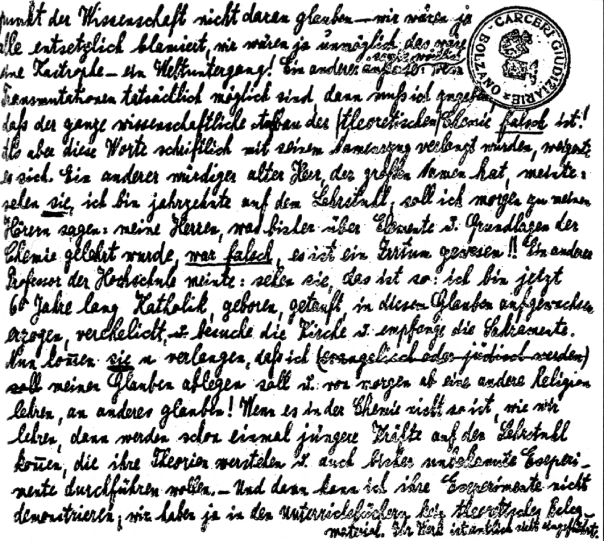 punkt der Wissenschaft nicht daran glauben — wir wären ja
alle entsetzlich blamiert, wir wären ja unmöglich, das wäre
eine Kastrophe — ein Weltuntergang! Ein anderer wenn
Transmutationen tatsächlich möglich sind, dann muß ich zugeben
daß der ganze wissenschaftliche der (theoretischen) Chemie falsch ist!
Als aber diese Worte schriftlich mit seinem verlangt wurden, weigerte
er sich. Ein anderer würdiger alter Herr, der großen Namen hat, meinte:
sehen sie, ich bin jahrzehnte auf dem Lehrstuhl, soll ich morgen zu meinen
Hörern sagen: meine Herren, was bisher über Elemente u. Grundlagen der
Chemie gelehrt wurde, war falsch, es ist ein Irrtum gewesen!! Ein anderer
Professor der Hochschule meinte: sehen sie, das ist so: ich bin jetzt
60 Jahre lang Katholik, geboren, getauft, in diesen Glauben aufgewachsen
erzogen, verehelicht, u. besuche die Kirche u. empfange die Sakramente.
Nun können sie verlangen, daß ich (evangelisch oder jüdisch werden)
soll meinen Glauben ablegen soll u. von morgen ab eine andere Religion
lehren, an anderes glauben! Wenn es in der Chemie nicht so ist, wie wir
lehren, dann werden schon einmal jüngere Kräfte auf den Lehrstuhl
kom̄en, die ihre Theorien verstehen u. auch bisher unbekannte Experi-
mente durchführen wollen. — Und dann kann ich ihre Experimente nicht
demonstrieren; wir haben ja in den Unterrichtsfächern kein theoretisches Beleg-
material. Ihr Werk ist amtlich nicht eingeführt.
CARCERI GIUDIZIARIE BOLZANO